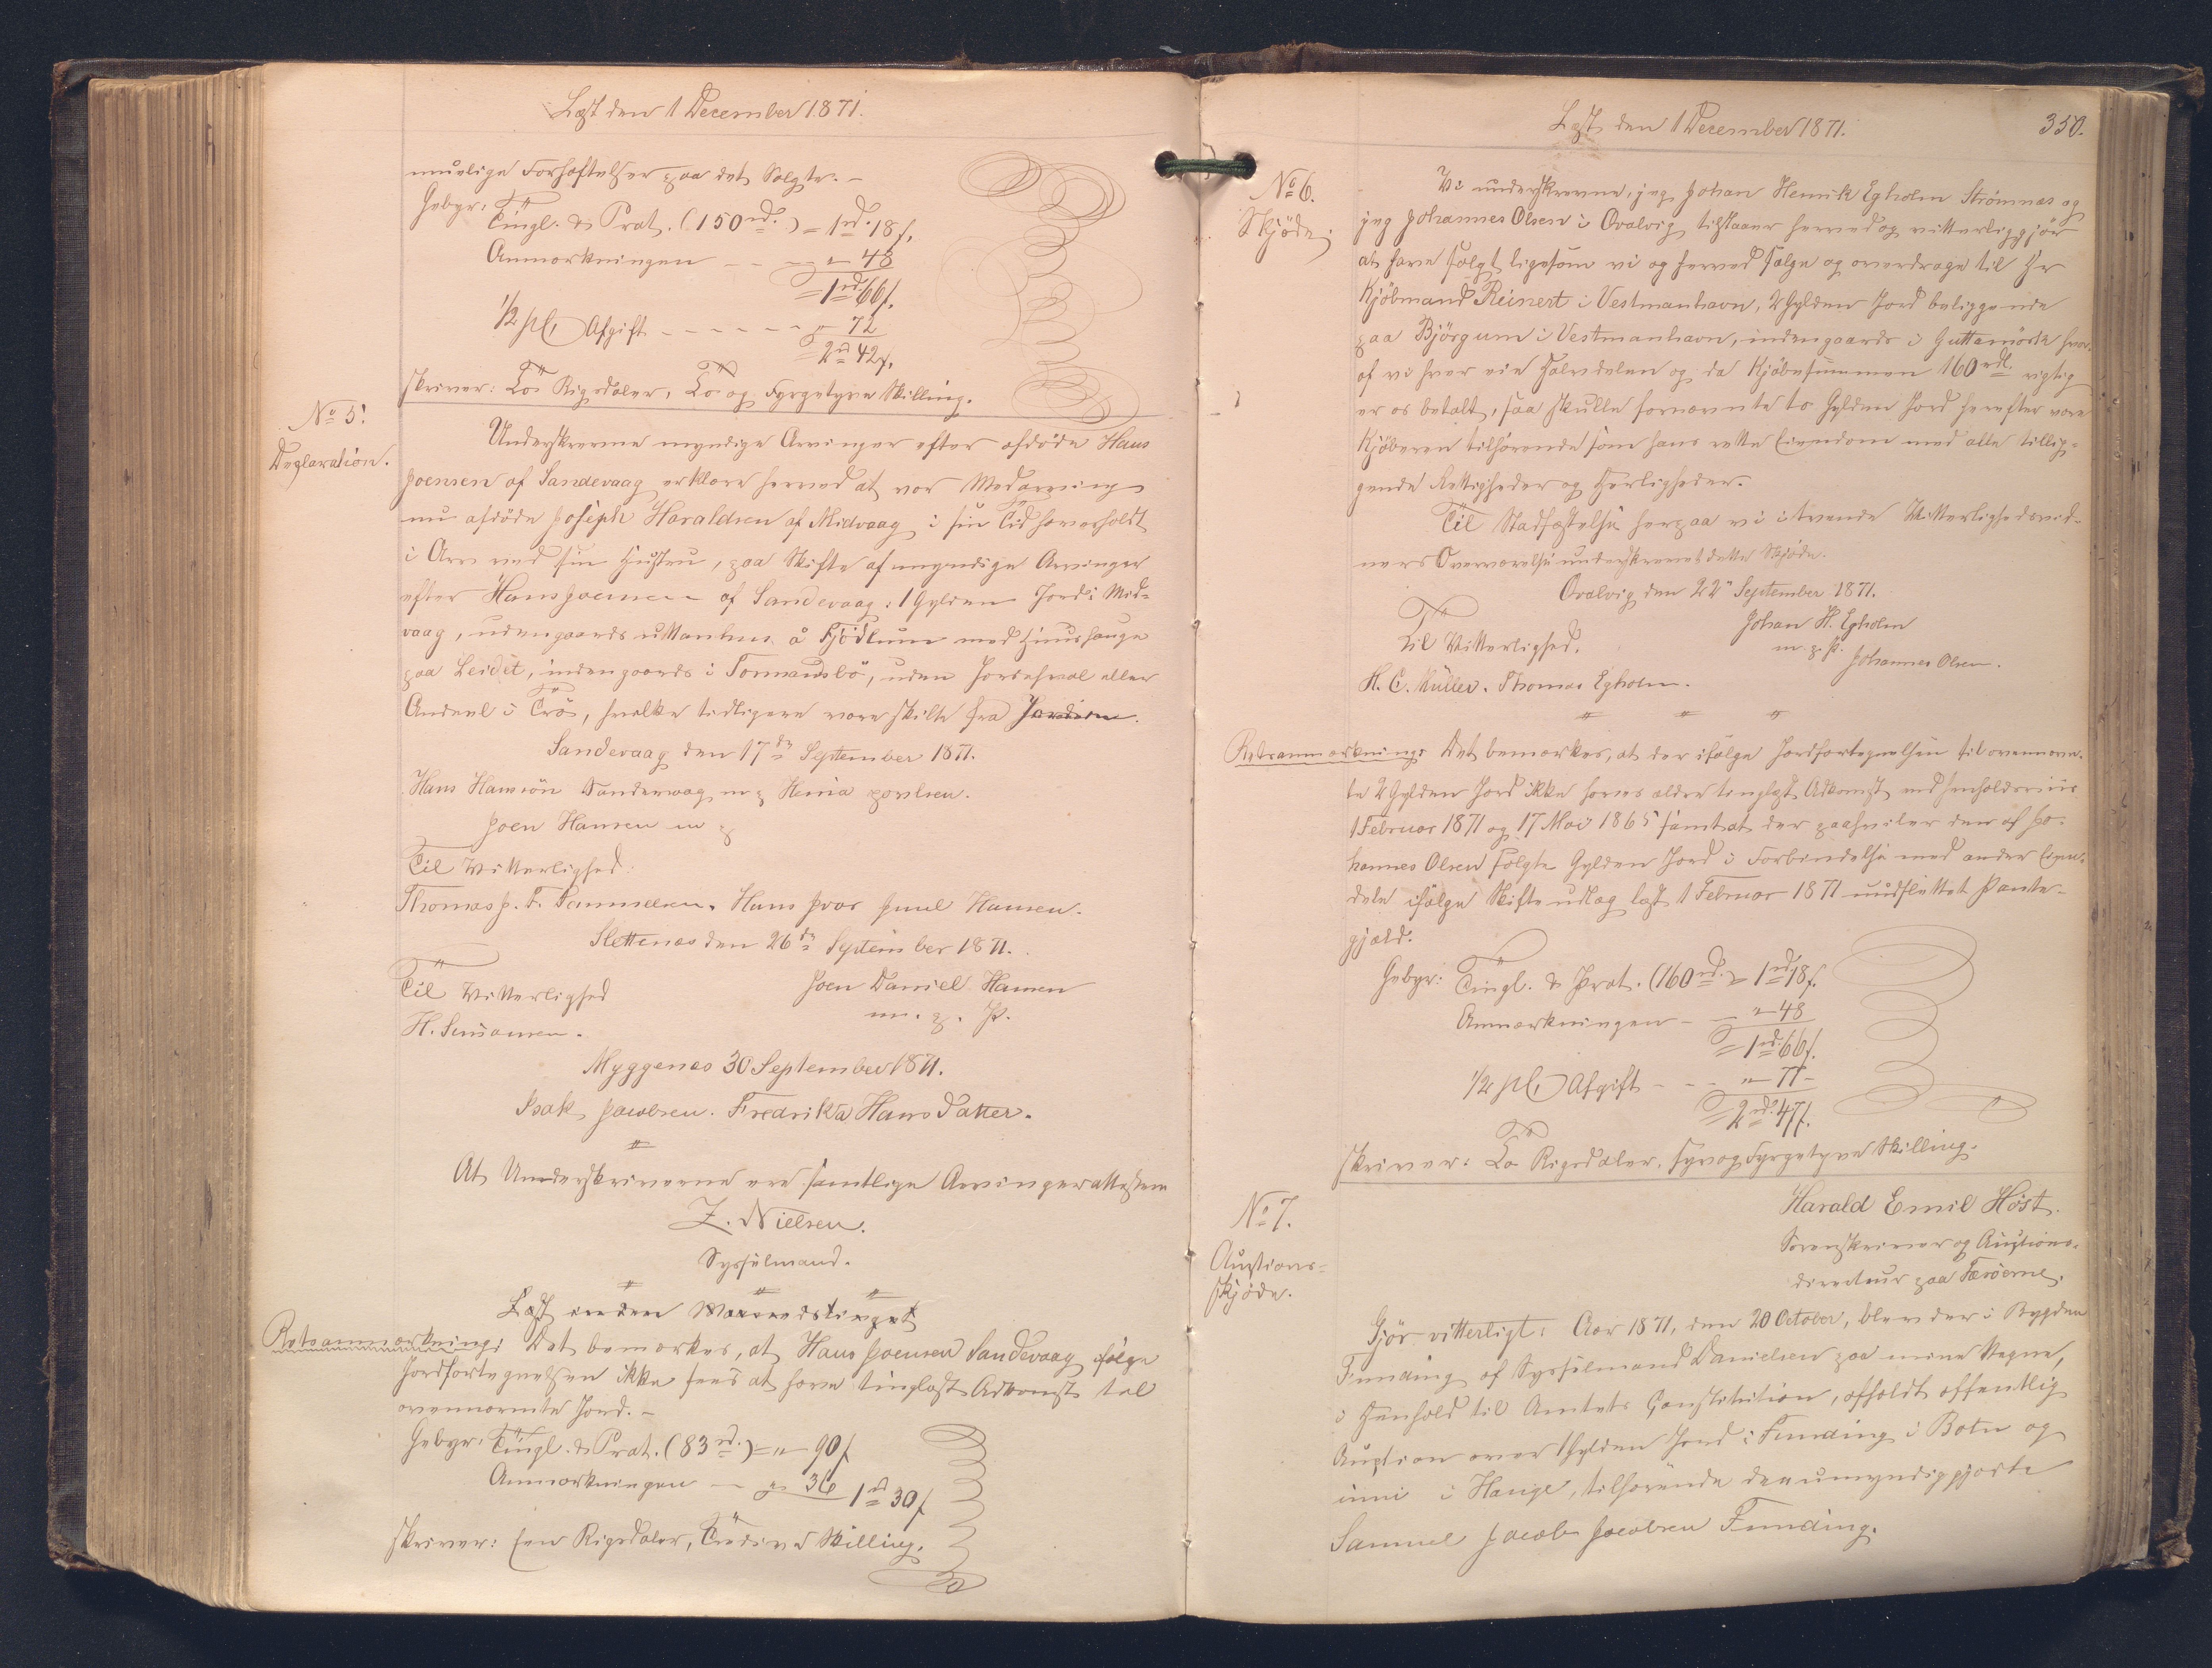 Læst den 1 December 1871.
muelige Forhæftelser paa det Solgte. —
Gebyr: Tingl. & Prot. (150 rd.) = 1 rd. 18 s.
Anmærkningen — — — " 48
= 1 rd. 66 s.
1/2 pCt Afgift - - - - - - " 72
= 2 rd 42 s.
skriver: To Rigsdaler, To og Fyrgetyve Skilling.
No 5.
Declaration.
Underskrevne myndige Arvinger efter afdøde Hans
Joensen af Sandevaag erklære herved at vor Medarving
nu afdøde Joseph Haraldsen af Midvaag i sin Tid har erholdt
i Arv med sin Hustru, paa Skifte af myndige Arvinger
efter Hans Joensen af Sandevaag: 1 Gylden Jord i Mid-
vaag, udengaards uttanhus å Fjödlum med Huushauge
paa Leidet, indengaards i Tormansbö, uden Jordehval eller
Andeel i Trö, hvilke tidligere vare skilte fra Jorden.
Sandevaag den 17de September 1871.
Hans Hansön Sandevaag m p Heina Povlsen.
Joen Hansen m p
Til Vitterlighed:
Thomas J. F. Samuelsen. Hans Ivar Juul Hansen.
Slettenæs den 26de September 1871.
Til Vitterlighed Joen Daniel Hansen
H. Simonsen. m. p. P.
Myggenæs 30 September 1871.
Isak Jacobsen. Fredrikka Hansdatter.
At Underskriverne ere samtlige Arvinger attesterer
Z. Nielsen.
Sysselmand.
Læst
Retsanmærkning: Det bemærkes, at Hans Joensen Sandevaag ifølge
Jordfortegnelsen ikke sees at have tinglæst Adkomst til
ovennævnte Jord. —
Gebyr: Tingl. & Prot. (83 rd.) = " 90 s
Anmærkningen — " 36 1 rd 30 s
skriver: Een Rigsdaler, Tredive Skilling.
Læst den 1 December 1871.
350.
No 6.
Skjøde.
Vi underskrevne, jeg Johan Henrik Egholm Strömnæs og
jeg Johannes Olsen i Qvalvig tilstaaer herved og vitterliggjör
at have solgt ligesom vi og herved sælge og overdrage til Hr
Kjöbmand Reinert i Vestmanhavn, 2 Gylden Jord beliggende
paa Björgum i Vestmanhavn, indengaards i Guttamörk hvor-
af vi hver eie Halvdelen og da Kjøbesummen 160 rdl. rigtig
er os betalt, saa skulle fornævnte to Gylden Jord herefter være
Kjöberen tilhørende som hans rette Eiendom med alle tillig-
gende Rettigheder og Herligheder.
Til Stadfæstelse herpaa vi i tvende Vitterlighedsvid-
ners Overværelse underskrevet dette Skjøde.
Qvalvig den 22 September 1871.
Til Vitterlighed. Johan H. Egholm
m. p. P. Johannes Olsen.
H. C. Müller. Thomas Egholm.
Retsanmærkning: Det bemærkes, at der ifølge Jordfortegnelsen til ovennævn-
te 2 Gylden Jord ikke haves ældre tinglæst Adkomst end henholdsviis
1 Februar 1871 og 17 Mai 1865 samt at der paahviler den af Jo-
hannes Olsen solgte Gylden Jord i Forbindelse med anden Eien-
dele ifølge Skifteudlæg læst 1 Februar 1871 uudslettet Pante-
gjæld.
Gebyr: Tingl. & Prot. (160 rd.) = 1 rd 18 s.
Anmærkningen — — " 48
= 1 rd. 66 s.
1/2 pCt Afgift - - - " 77 -
= 2 rd. 47 s.
skriver: To Rigsdaler, syv og Fyrgetyve Skilling.
No 7.
Auctions-
skjøde.
Harald Emil Höst.
Sorenskriver og Auctions-
directeur paa Færöerne,
Gjör vitterligt: Aar 1871, den 20 October, blev der i Bygden
Funding af Sysselmand Danielsen paa mine Vegne,
i Henhold til Amtets Constitution, afholdt offentlig
Auction over 1 Gylden Jord i Funding i Botn og
inni i Hauge, tilhørende den umyndiggjorte
Samuel Jacob Jacobsen Funding.